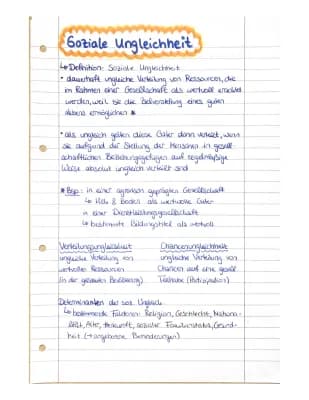 Soziale Ungleichheit
↳ Definition: Soziale Ungleichheit
• dauerhaft ungleiche Verteilung von Ressourcen, die
im Rahmen einer Gesellschaft als wertvoll erachtet
werden, weil sie die Bedeutung eines guten
Lebens ermöglichen *
• als ungleich gelten diese Güter dann verteilt, wenn
sie aufgrund der Stellung der Menschen in gesell-
schaftlichen Beziehungsgefügen auf regelmäßige
Weise absolut ungleich verteilt sind
* Bsp: in einer agrarisch geprägten Gesellschaft
↳ & Boden als wertvolle Güter
in einer Dienstleistungsgesellschaft
↳ bestimmte Bildungstitel als wertvoll
Verteilungsungleichheit Chancenungleichheit
ungleiche Verteilung von ungleiche Verteilung von
wertvoller Ressourcen Chancen auf eine gesell.
(in der gesamten Bevölkerung) Teilhabe (Partizipation)
Determinanten der soz. Ungleich.
↳ bestimmende Faktoren: Religion, Geschlecht, Nationa-
lität, Alter, Herkunft, sozialer Familienstatus, Gesund-
heit (→ angeborene Behinderungen)